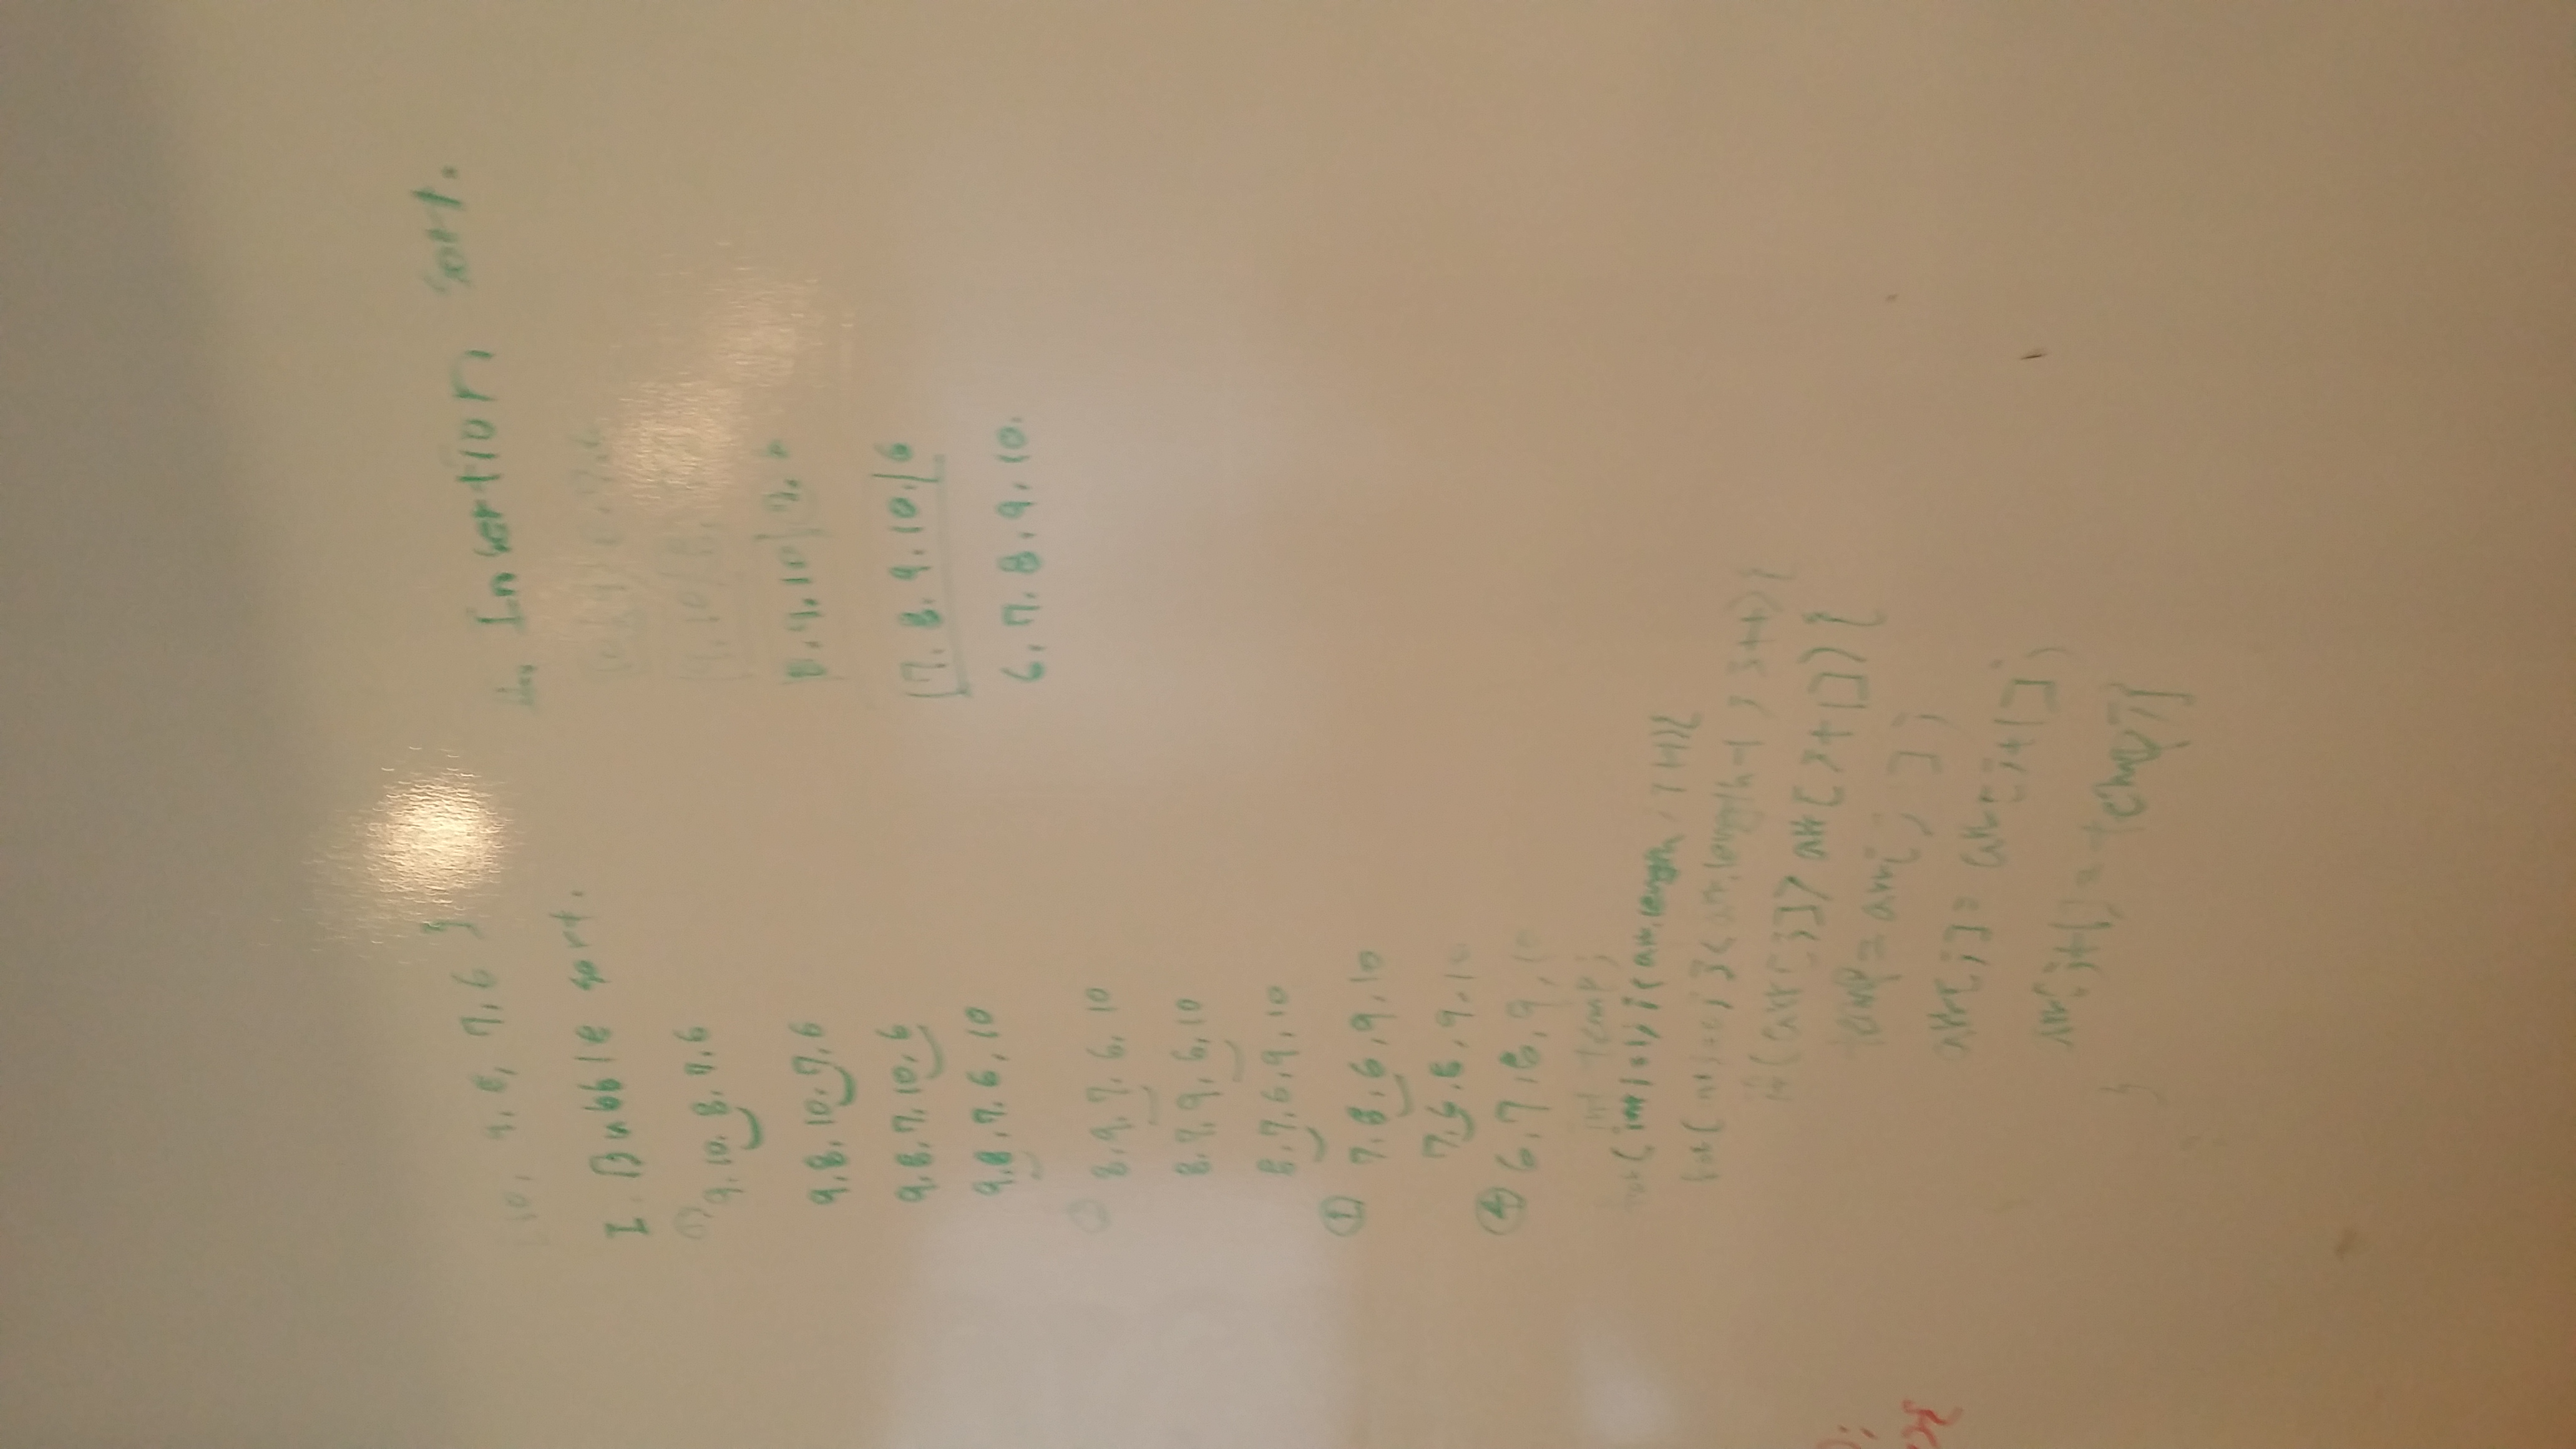 {10, 9, 8, 7, 6 }
I. Bubble sort.
①
9, 10, 8, 7, 6
9, 8, 10, 7, 6
9, 8, 7, 10, 6
9, 8, 7, 6, 10
②
8, 9, 7, 6, 10
8, 7, 9, 6, 10
8, 7, 6, 9, 10
①
7, 8, 6, 9, 10
7, 6, 8, 9, 10
④ 6, 7, 8, 9, 10
int temp;
for( int i=1; i< arr.length ; i++){
for( int j=0; j< arr.length-1 ; j++){
if(arr[j]> arr[j+1]){
temp = arr[j];
arr[j]= arr[j+1];
arr[j+1] = temp;}
}
II. Insertion sort.
|9, 10| 8,
|8, 9, 10| 7, 6
|7, 8, 9, 10,| 6
6, 7, 8, 9, 10.
);